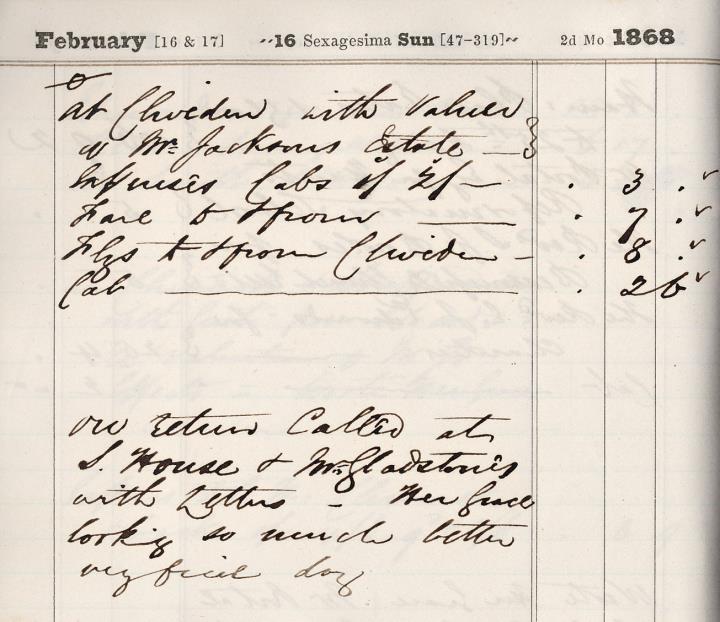 February [16 & 17] 16 Sexagesima Sun [47-319] 2d Mo 1868
At Cliveden with Valuer
Mr. Jacksons Estate —
Expenses Cabs — . 3 .
Fare to & from — . 7 .
Flys to & from Cliveden - . 8 .
Cab — . 2 6
on return Called at
S. House & Mr. Gladstone's
with Letters - Her Grace
looking so much better
very fine day